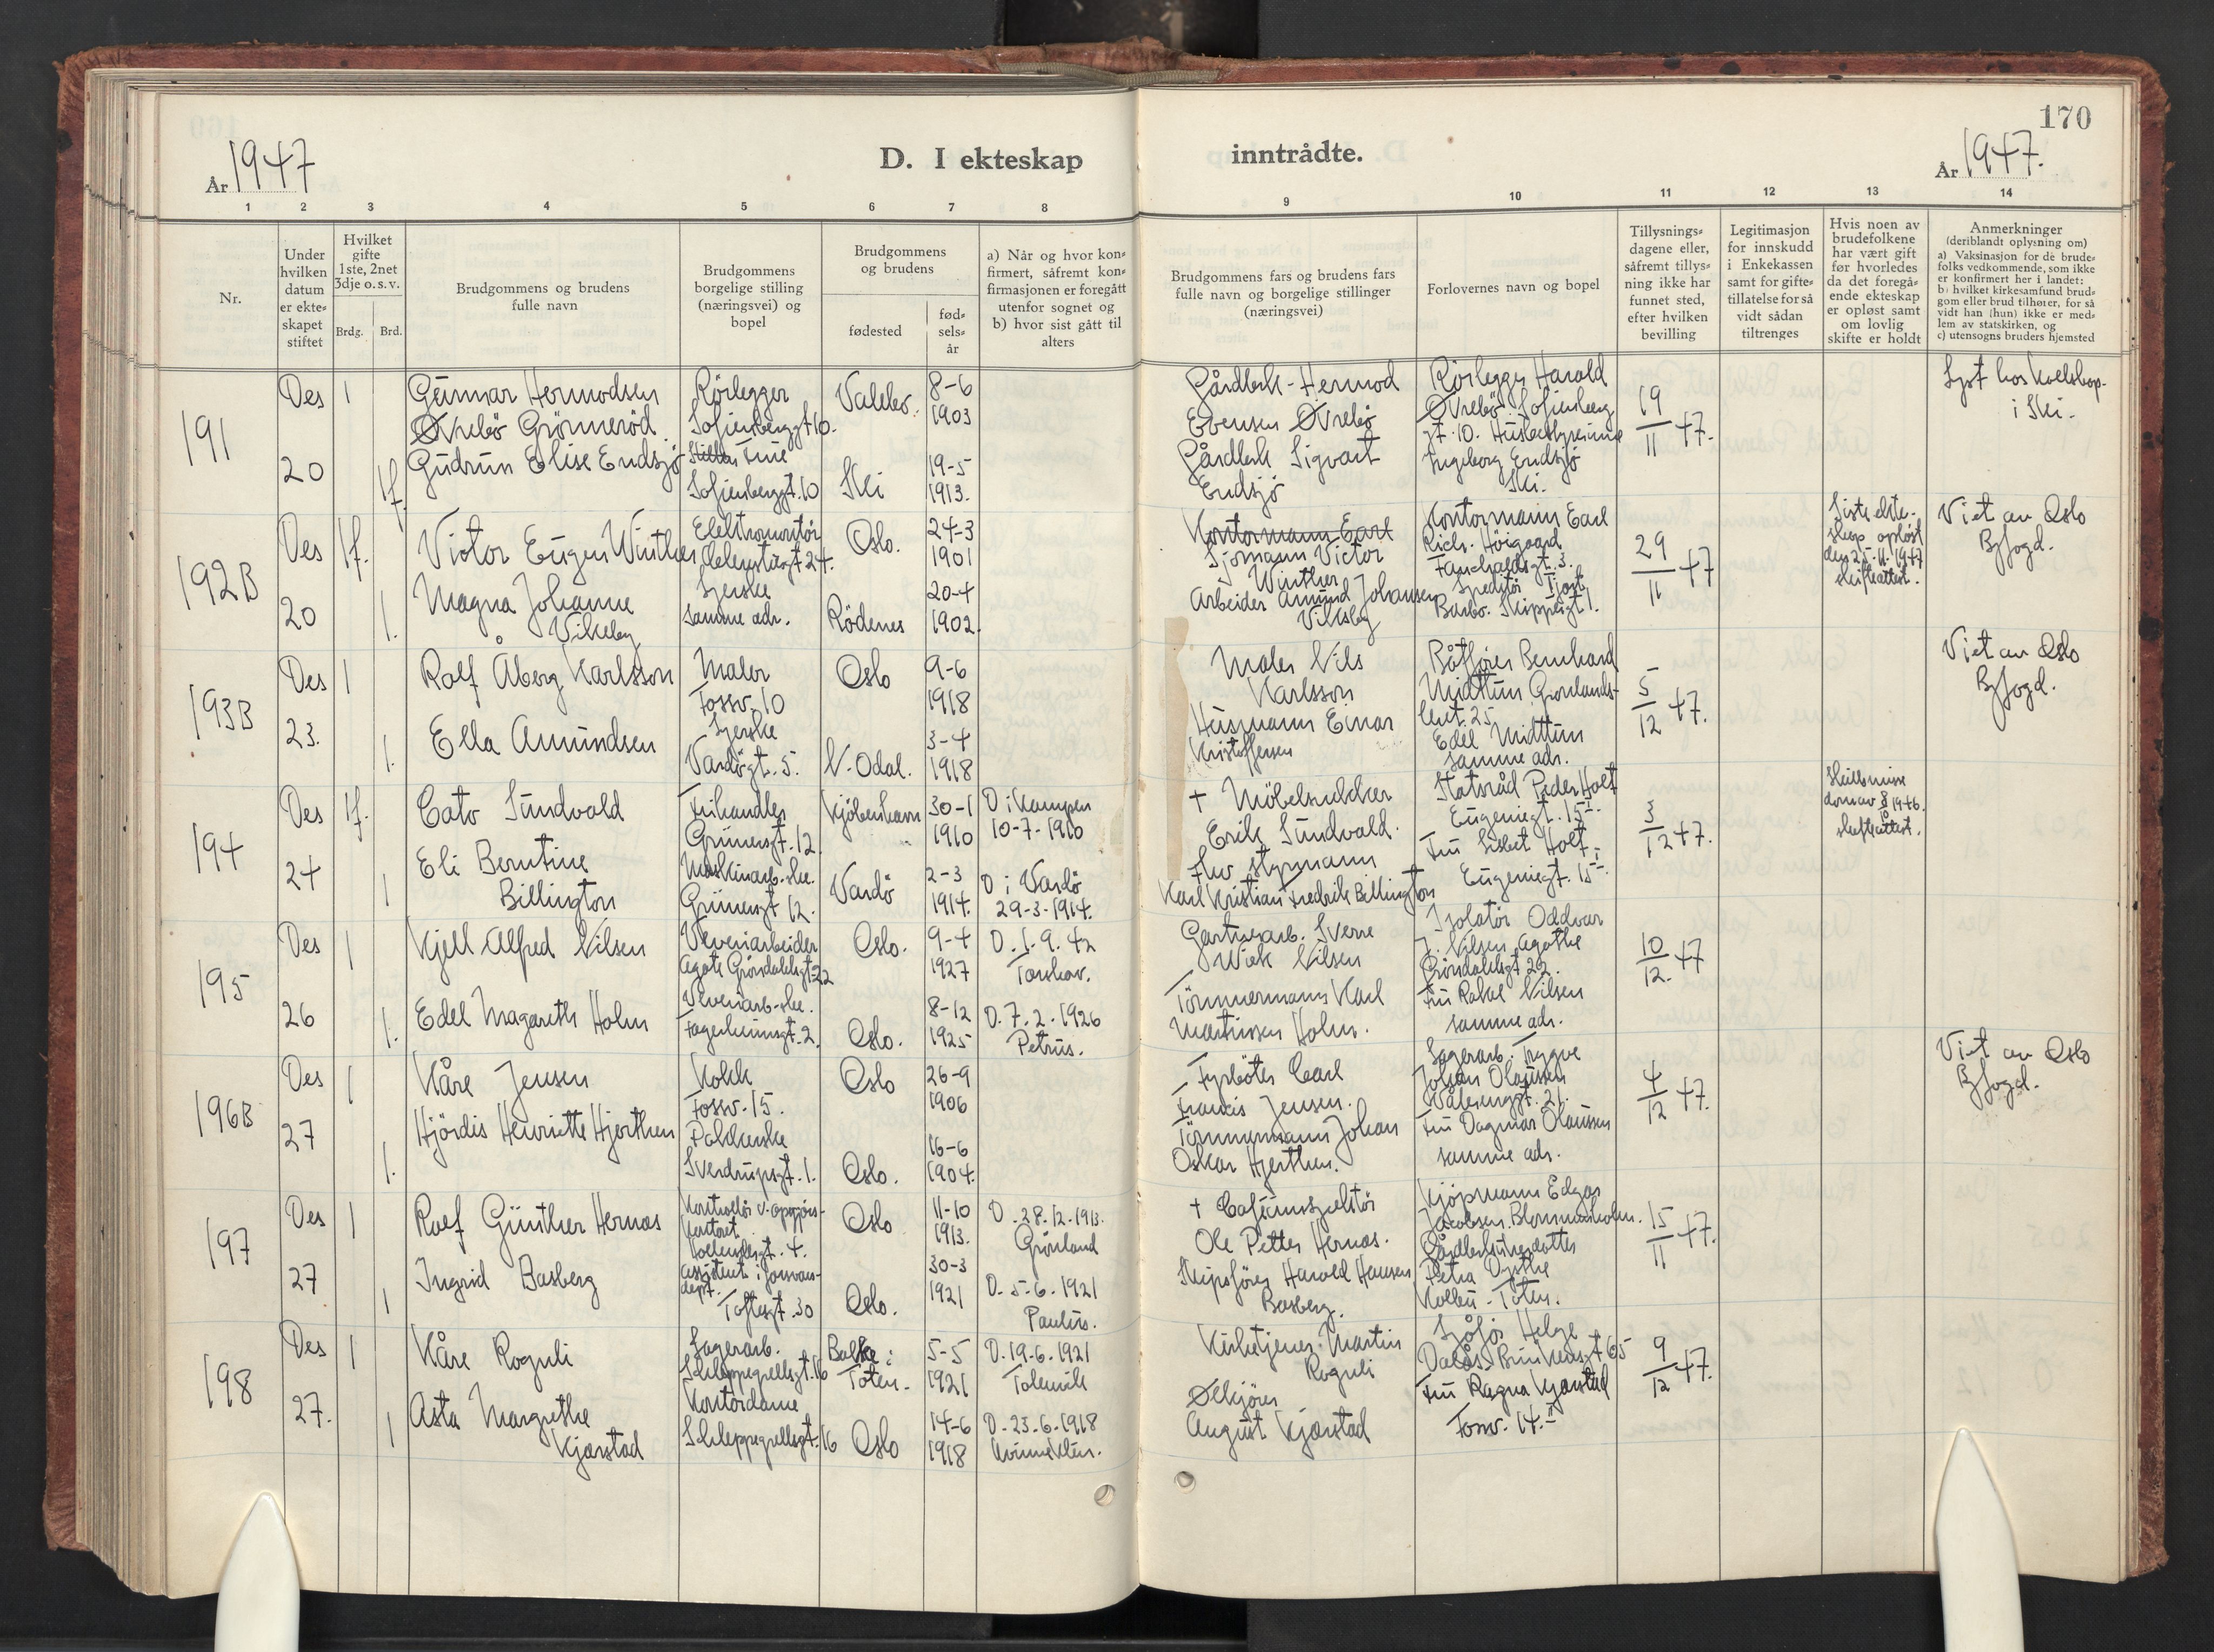 170
År 1947
D. I ekteskap inntrådte.
År 1947.
1 2 3 4 5 6 7 8 9 10 11 12 13 14
Nr.
Under hvilken datum er ekte=skapet stiftet
Hvilket gifte 1ste, 2net 3dje o. s. v.
Brdg. Brd.
Brudgommens og brudens fulle navn
Brudgommens borgelige stilling (næringsvei) og bopel
Brudgommens og brudens
fødested
fød=sels=år
a) Når og hvor kon=firmert, såfremt kon=firmasjonen er foregått utenfor sognet og b) hvor sist gått til alters
Brudgommens fars og brudens fars fulle navn og borgelige stillinger (næringsvei)
Forlovernes navn og bopel
Tillysnings=dagene eller, såfremt tillys=ning ikke har funnet sted, efter hvilken bevilling
Legitimasjon for innskudd i Enkekassen samt for gifte=tillatelse for så vidt sådan tiltrenges
Hvis noen av brudefolkene har vært gift før hvorledes da det foregå=ende ekteskap er opløst samt om lovlig skifte er holdt
Anmerkninger (deriblandt oplysning om) a) Vaksinasjon for de brude=folks vedkommende, som ikke er konfirmert her i landet: b) hvilket kirkesamfund brud=gom eller brud tilhører, for så vidt han (hun) ikke er med=lem av statskirken, og c) utensogns bruders hjemsted
191
Des 20
1 1f.
Gunnar Hermodsen
Øvrebø Grønnerød
Rørlegger
Sofienberggt 10.
8-6
1903
Gårdbr. Hermod
Evensen Øvrebø
Rørlegger Harald
Øvrebø. Sofienberg
gt. 10. Husbestyrerinne
Ingeborg Endsjø
Ski.
19/11 47.
i Ski.
Gudrun Elise Endsjø
Frue
Sofienberggt. 10
Ski
19-5
1913.
Gårdbr. Sigvart
Endsjø
192B
Des 20
1f. 1.
Victor Eugen Winther
Elektromontør
Oslo.
24-3
1901
Kontormann Earl
Sjømann Victor
Winther
Kontormann Earl
Rich. Høigaard
29/11 47
Siste ekte-
skap opløst
den 25.11.1947
skifteattest.
Viet av Oslo
Byfogd.
Magna Johanne
Vikeby
Syerske
samme adr.
Rödenes
20-4
1902.
Arbeider Amund Johansen
Vikeby
193B
Des 23.
1 1.
Rolf Åberg Karlsson
Maler
Fossv. 10
Oslo
9-6
1918
Maler Nils
Karlsson
Båtfører Bernhard
Midttun, Grønlands-
leiret. 25
Edel Midttun
samme adr.
5/12 47.
Viet av Oslo
Byfogd.
Ella Amundsen
Syerske
Vardøgt. 5.
V. Odal.
3-4
1918
Husmann Einar
Kristoffersen
194
Des 24
1f. 1
Cato Sundvold
Frihandler
Grünersgt. 12.
Kjøbenhavn
30-1
1910
D i Kampen
10-7-1910
† Møbelsnekker
Erik Sundvold.
Statsråd Peder Holt
Eugeniegt. 15
Fru Lisbet Holt
Eugeniegt. 15
3/12 47.
skifteattest.
Eli Berntine
Billington
Maskinarb.ske.
Grünersgt 12.
Vardö
2-3
1914.
D i Vardö
29-3-1914.
Flv. styrmann
Karl Kristian Fredrik Billington
195
Des 26
1 1.
Kjell Alfred Nilsen
Veveriarbeider
Agate Grøndahlsgt. 22
Oslo.
9-4
1927
D. 1.9.42
Torshov.
Gartnerarb. Sverre
Wiik Nilsen
Isolatør Oddvar
J. Nilsen, Agathe
Grøndahlsgt 22.
Fru Rakel Nilsen
samme adr.
10/12. 47
Edel Margareth Holm
Veveriarb.ske.
Fagerheimsgt. 2.
Oslo.
8-12
1925
D. 7.2.1926
Petrus.
Tömmermann Karl
Martinsen Holm.
196B
Des 27
1 1.
Kåre Jensen
Kokk
Fossv. 15.
Oslo
26-9
1906
Fyrböter Carl
Francis Jensen.
Lagerarb. Trygve
Johan Olaussen
Vålerenggt. 21.
Fru Dagmar Olaussen
samme adr.
4/12 47.
Viet av Oslo
Byfogd.
Hjördis Henriette Hjerthen
Pakkerske
Sverdrupsgt. 1.
Oslo.
16-6
1904.
Tömmermann Johan
Oskar Hjerthen.
197
Des 27
1 1
Rolf Günther Hernæs
Oslo
11-10
1913.
D. 28.12.1913.
Grønland
Ole Petter Hernæs.
Kjøpmann Edgar
Jacobsen. Blommenholm.
Gårdbrukerdatter
Petra Dysthe
Kolbu - Toten.
15/11 47.
Ingrid Basberg
assistent i forsvars-
dept.
Toftesgt. 30
Oslo.
30-3
1921
D. 5-6.1921
Paulus.
Skipsfører Harald Hansen
Basberg.
198
Des 27.
1 1
Kåre Roguli
Lagerarb.
Schleppegrellsgt. 16
Balke i
Toten.
5-5
1921
D. 19-6.1921
Kirketjener Martin
Roguli
Sjåfør Helge
Fru Ragna Kjærstad
Fossv. 14.
9/12 47.
Asta Margrethe
Kjærstad
Kontordame
Schleppegrellsgt. 16
Oslo
14-6
1918
D. 23.6.1918
Ølkjører
August Kjærstad